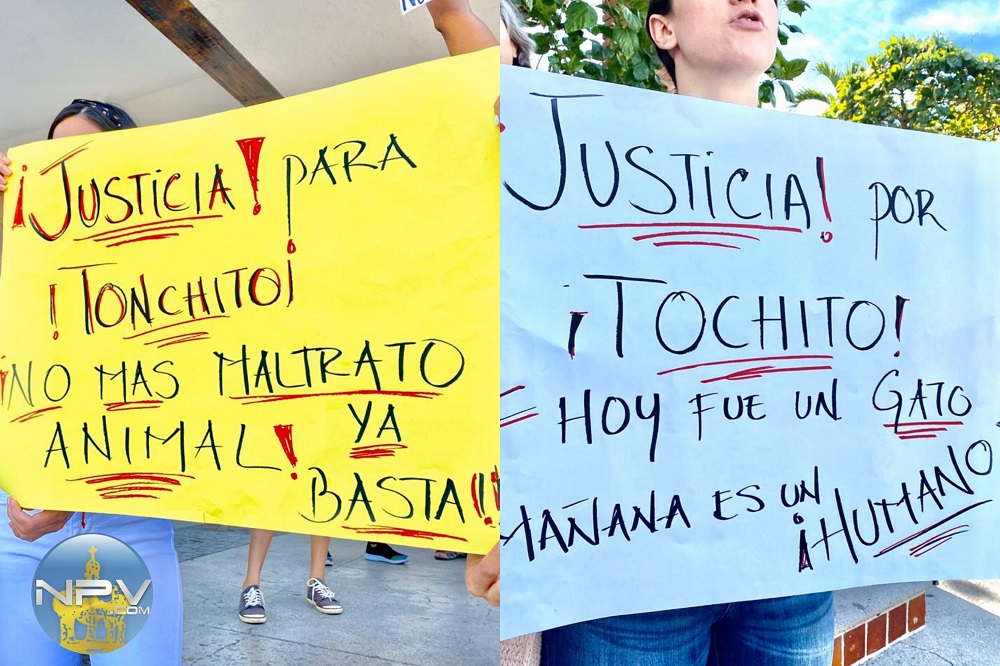 ¡JUSTICIA! PARA
¡TONCHITO!
¡NO MAS MALTRATO
ANIMAL! YA
BASTA!!
JUSTICIA! POR
¡TOCHITO!
HOY FUE UN GATO
MAÑANA ES UN
¡HUMANO
NPV
.COM